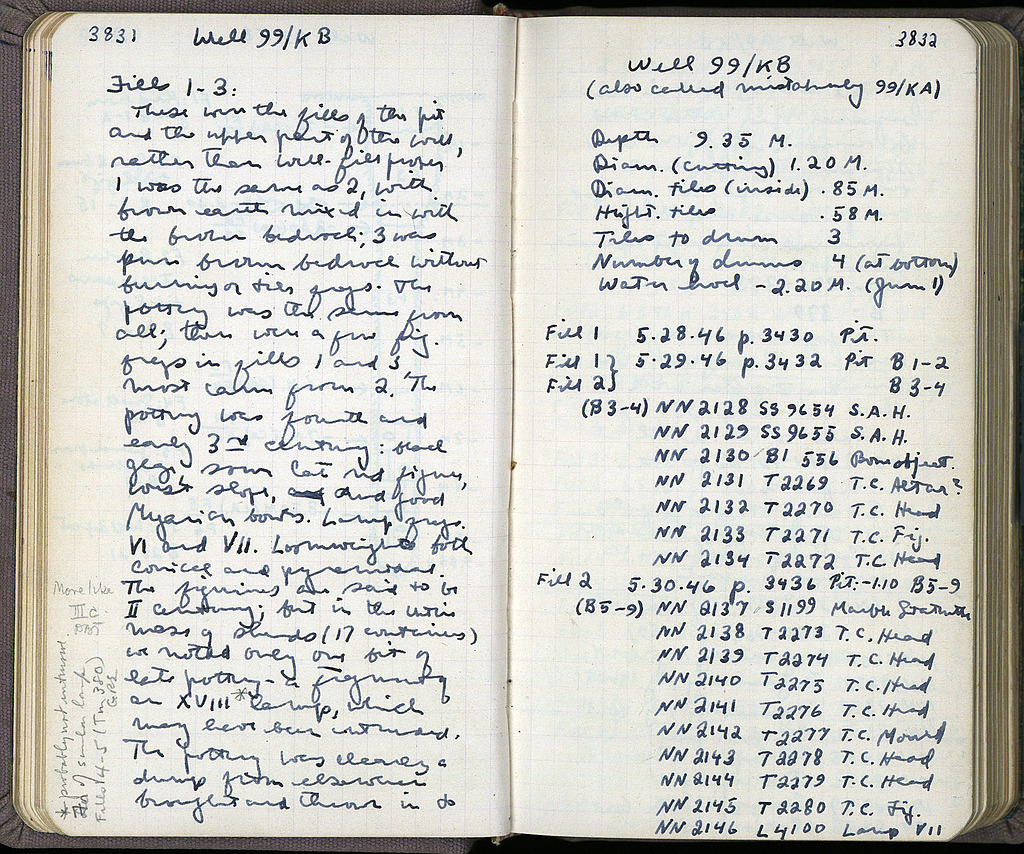 3831 Well 99/KB
Fills 1-3:
These were the fills of the pit
and the upper part of the well,
rather than well-fill proper
1 was the same as 2, with
brown earth mixed in with
the brown bedrock; 3 was
pure brown bedrock without
or tile frags. The
pottery was the same from
all; there were a few fig.
frags in fills 1 and 3
most came from 2. The
pottery was fourth and
early 3rd century: black
glaze, some late red figure,
West slope, and good
Megarian bowls. Lamp frags.
VI and VII. Loomweights both
conical and pyramidal.
The figurines are said to be
II century; but in the entire
mass of sherds (17 containers)
we noted only one bit of
late pottery - a fragment of
an XVIII* lamp, which
may have been intrusive.
The pottery was clearly a
dump from elsewhere
brought and thrown in to
More like
III c.
DBT
* probably not intrusive
of similar lamp
Fills 4-5 (Tm 380)
GRE
3832
Well 99/KB
(also called mistakenly 99/KA)
Depth 9.35 M.
Diam. (cutting) 1.20 M.
Diam. tiles (inside) .85 M.
Hight. tiles .58 M.
Tiles to drum 3
Number of drums 4 (at bottom)
Water level -2.20 M. (June 1)
Fill 1 5.28.46 p. 3430 Pit.
Fill 1} 5.29.46 p. 3432 Pit B 1-2
Fill 2} B 3-4
(B3-4) NN 2128 SS 9654 S.A.H.
NN 2129 SS 9655 S.A.H.
NN 2130 BI 556 Bone object.
NN 2131 T 2269 T.C. Altar?
NN 2132 T 2270 T.C. Head
NN 2133 T 2271 T.C. Fig.
NN 2134 T 2272 T.C. Head
Fill 2 5.30.46 p. 3436 Pit:-1.10 B5-9
(B5-9) NN 2137 S 1199 Marble Statuette
NN 2138 T 2273 T.C. Head
NN 2139 T 2274 T.C. Head
NN 2140 T 2275 T.C. Head
NN 2141 T 2276 T.C. Head
NN 2142 T 2277 T.C. Mould
NN 2143 T 2278 T.C. Head
NN 2144 T 2279 T.C. Head
NN 2145 T 2280 T.C. Fig.
NN 2146 L 4100 Lamp VII